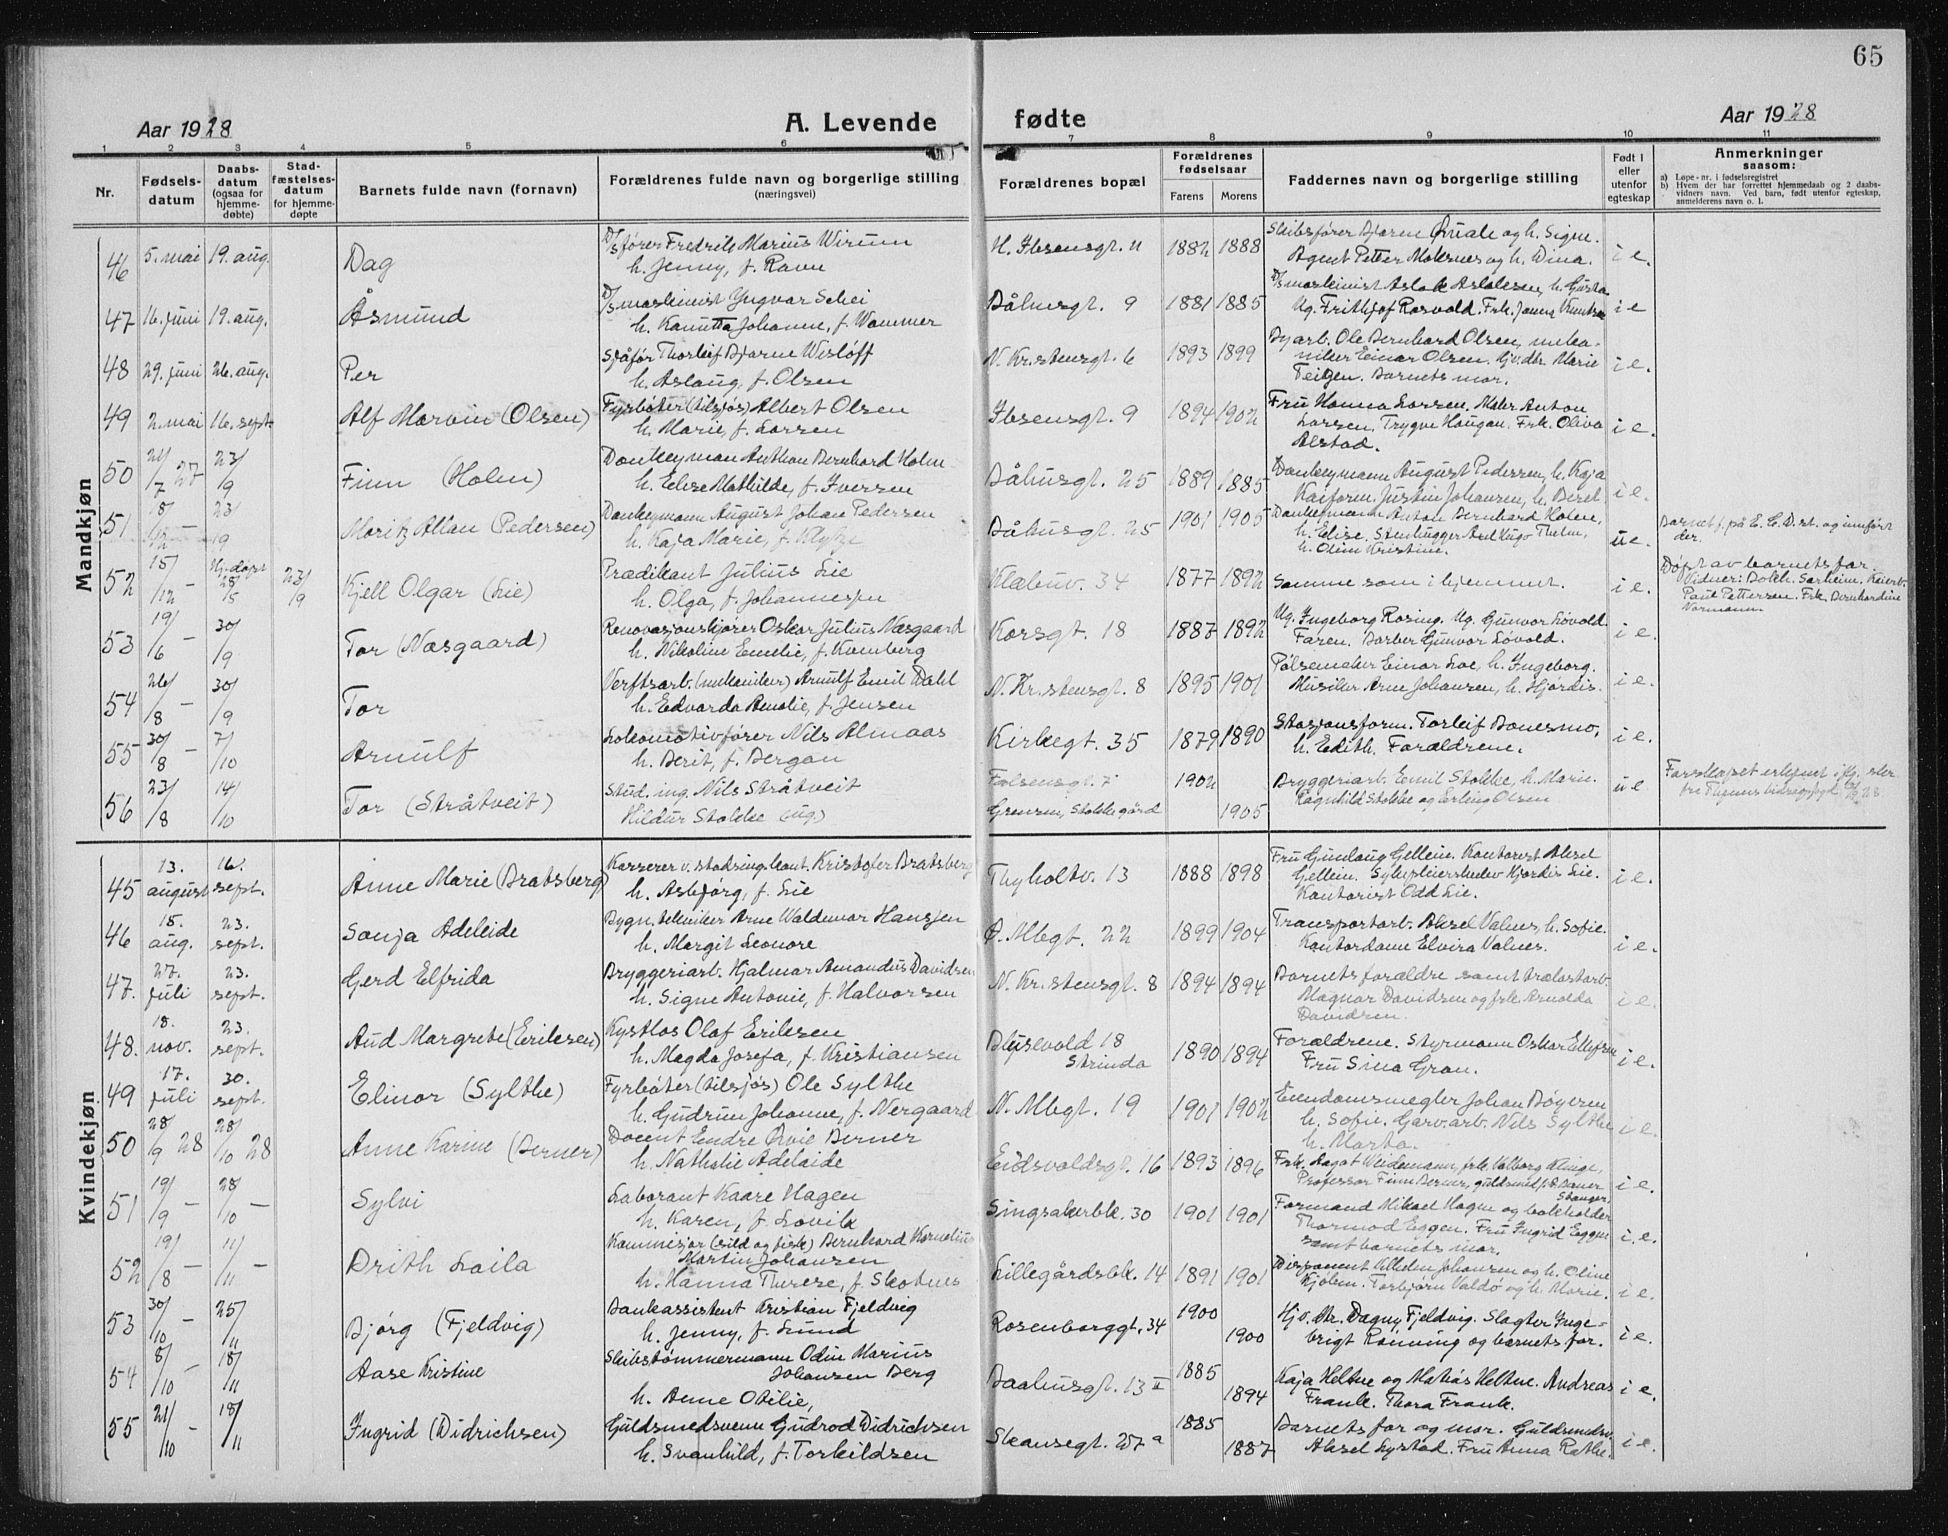 65
Aar 1928
A. Levende fødte
Aar 1928
1 2 3 4 5 6 7 8 9 10 11
Nr.
Fødsels-
datum
Daabs-
datum
(ogsaa for
hjemme-
døbte)
Stad-
fæstelses-
datum
for hjemme-
døpte
Barnets fulde navn (fornavn)
Forældrenes fulde navn og borgerlige stilling
(næringsvei)
Forældrenes bopæl
Forældrenes
fødselsaar
Farens Morens
Faddernes navn og borgerlige stilling
Født i
eller
utenfor
egteskap
Anmerkninger
saasom:
a) Løpe-nr. i fødselsregistret
b) Hvem der har forrettet hjemmedaab og 2 daabs-
vidners navn. Ved barn, født utenfor egteskap,
anmelderens navn o. l.
Mandkjøn
46 5. mai 19. aug. Dag
D/s fører Fredrik Marius Wirum
h. Jenny, f. Ravn
H. Ibsensgt. 11 1882 1888
Skibsfører Bjarne Qvale og h. Signe.
Agent Petter Moksnes og h. Dina.
i e.
47 16. juni 19. aug. Åsmund
D/s maskinist Yngvar Schei
h. Kanutta Johanne, f. Wammer
Båhusgt. 9 1881 1885
D/s maskinist Aslak Aslaksen, h. Gusta
Ug. Frithjof Rosvold. Frk. Janna Knutsen
i e
48 29. juni 26. aug. Per
Sjåfør Thorleif Bjarne Wisløff
h. Aslaug, f. Olsen
N. Kr.stensgt. 6 1893 1899
Byarb. Ole Bernhard Olsen, meka-
niker Einar Olsen, tjv.dtr. Marie
Teigen. Barnets mor.
i e.
49 2. mai 16. sept. Alf Marvin (Olsen)
Fyrbøter (tilsjøs) Albert Olsen
h. Marie, f. Larsen
Ibsensgt. 9 1894 1902
Fru Hanna Larsen. Maler Anton
Larsen. Trygve Haugan. Frk. Oliva
Alstad.
i e.
50 21/7 27 23/9 Finn (Holm)
Donkeyman Anthon Bernhard Holm
h. Elise Mathilde, f. Iversen
Båhusgt. 25 1889 1885
Donkeymann August Pedersen, h. Kaja
Kaiform. Justin Johansen, h. Beret
i e.
51 18/12 23/9 Moritz Allan (Pedersen)
Donkeymann August Johan Pedersen
h. Kaja Marie, f. Klykze
Båhusgt. 25 1901 1905
Donkeymann Anton Bernhard Holm,
h. Elise. Stenhugger Axel Hugo Thelin,
h. Oline Kristine.
u e.
Barnet f. på E. C. D. st. og innført
der.
52 15/12 Hj.døpt 28/5 23/9 Kjell Olgar (Lie)
Prædikant Julius Lie
h. Olga, f. Johannesen
Klæbuv. 34 1877 1892
Samme som i hjemmet.
i e.
Døpt av barnets far.
Vidner: Bokh. Sarheim. Keierb.
Paul Pettersen. Frk. Bernhardine
Normann
53 19/6 - 30/9 Tor (Næsgaard)
Renovasjonskjører Oskar Julius Næsgaard
h. Nikoline Emelie, f. Kvenberg
Korsgt. 18 1887 1892
Ug. Ingeborg Rosing. Ug. Gunvor Løvold.
Faren. Barber Gunvor Løvold.
i e.
54 26/8 - 30/9 Tor
Verftsarb. (mekaniker) Arnulf Emil Dahl
h. Edvarda Amalie, f. Jensen
N. Kr.stensgt. 8 1895 1901
Pølsemaker Einar Loe, h. Ingeborg.
Musiker Arne Johansen, h. Hjørdis.
i e.
55 30/8 7/10 Arnulf
Lokomotivfører Nils Almaas
h. Berit, f. Bergan
Kirkegt. 35 1879 1890
Stasjonsform. Torleif Bonesmo,
h. Edith. Forældrene.
i e.
56 23/8 14/10 Tor (Stråtveit)
Stud. ing. Nils Stråtveit
Hildur Stokke (ug.)
Falsensgt. 7 1902
Grensen, Stokkegård 1905
Bryggeriarb. Emil Stokke, h. Marie.
Ragnhild Stokke og Erling Olsen
u e
Farskapet erkjent
Kvindekjøn
45 13. august 16. sept. Anne Marie (Bratsberg)
Kasserer v. stadsing.kont. Kristofer Bratsberg
h. Asbjørg, f. Lie
Thyholtv. 13 1888 1898
Fru Gunlaug Gellein. Kontorist Aksel
Gellein. Sykepleierskelev Hjørdis Lie.
Kontorist Odd Lie.
i e.
46 18. aug. 23. sept. Sonja Adeleide
Bygn.tekniker Arne Waldemar Hansen
h. Margit Leonore
Ø. Mbegt. 22 1899 1904
Transportarb. Aksel Valnes, h. Sofie.
Kontordame Elvira Valnes.
i e.
47. 27. juli 23. sept. Gerd Elfrida
Bryggeriarb. Hjalmar Amandus Davidsen
h. Signe Antonie, f. Halvorsen
N. Kr.stensgt. 8 1894 1894
Barnets forældre samt trælastarb.
Magnar Davidsen og frk. Arnolda
Davidsen.
i e.
48. 18. nov. 23. sept. Aud Margrete (Eriksen)
Kystlos Olaf Eriksen
h. Magda Josefa, f. Kristiansen
Blusevold 18
Strinda 1890 1894
Forældrene. Styrmann Oskar Ellefsen
Fru Sina Gran.
i e.
49 17. juli 30. sept. Elinor (Sylthe)
Fyrbøter (tilsjøs) Ole Sylthe
h. Gudrun Johanne, f. Nergaard
N. Mbegt. 19 1901 1902
Eiendomsmegler Johan Bøyesen
h. Sofie. Garv.arb. Nils Sylthe
h. Marta.
i e.
50 28/9 28 28/10 28 Anne Karine (Berner)
Docent Endre Qvie Berner
h. Nathalie Adelaide
Eidsvoldsgt. 16 1893 1896
Frk. Aagot Weidemann, frk. Valborg Klinge,
Professor Finn Berner, guldsmed
Stavanger
i e.
51 19/9 - 28/10 - Sylvi
Laborant Kaare Hagen
h. Karen, f. Løvik
Singsakerbk. 30 1901 1901
Formand Mikael Hagen og bokholder
Thormod Eggen. Fru Ingrid Eggen
samt barnets mor.
i. e.
52 19/8 - 11/11 - Drith Laila
Kommisjær (sild og fisk) Bernhard Kornelius
Martin Johansen
h. Hanna Therese, f. Skotnes
Lillegårdsbk. 14 1891 1901
Disponent Vilhelm Johansen og h. Oline
Kjølen. Torbjørn Valdø og h. Marie.
i e.
53 30/10 - 25/11 Bjørg (Fjeldvig)
Bankassistent Kristian Fjeldvig
h. Jenny, f. Lund
Rosenborggt. 34 1900
1900
Hjv. dtr. Dagny Fjeldvig. Slagter Inge-
brigt Rønning og barnets far.
i e.
54 8/10 - 18/11 Aase Kristine
Skibstømmermann Odin Marius
Johansen Berg
h. Anne Otilie,
Baahusgt. 13 II 1885
1894
Kaja Heltne og Matias Heltne. Andreas
Frank. Thora Frank.
i e.
55 21/10 - 18/11 Ingrid (Didrichsen)
Guldsmedsvenn Gudrod Didrichsen
h. Svanhild, f. Torkildsen
Skansegt. 27 a 1885
1887
Barnets far og mor. Guldsmedsv.
Aksel Lystad. Fru Anna Rathe.
i e.